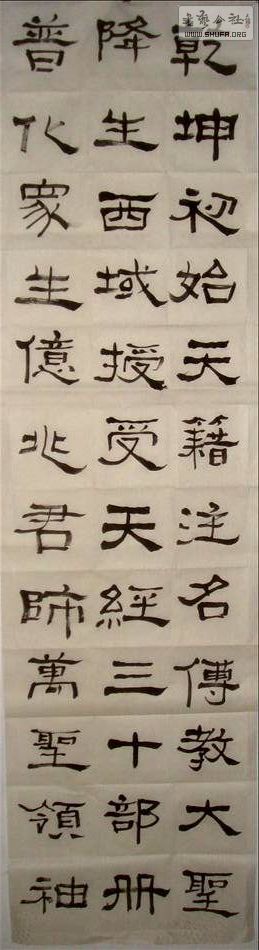 乾坤初始天籍注名傳教大聖
降生西域授受天經三十部册
普化眾生億兆君師萬聖領袖
WWW.SHUFA.ORG